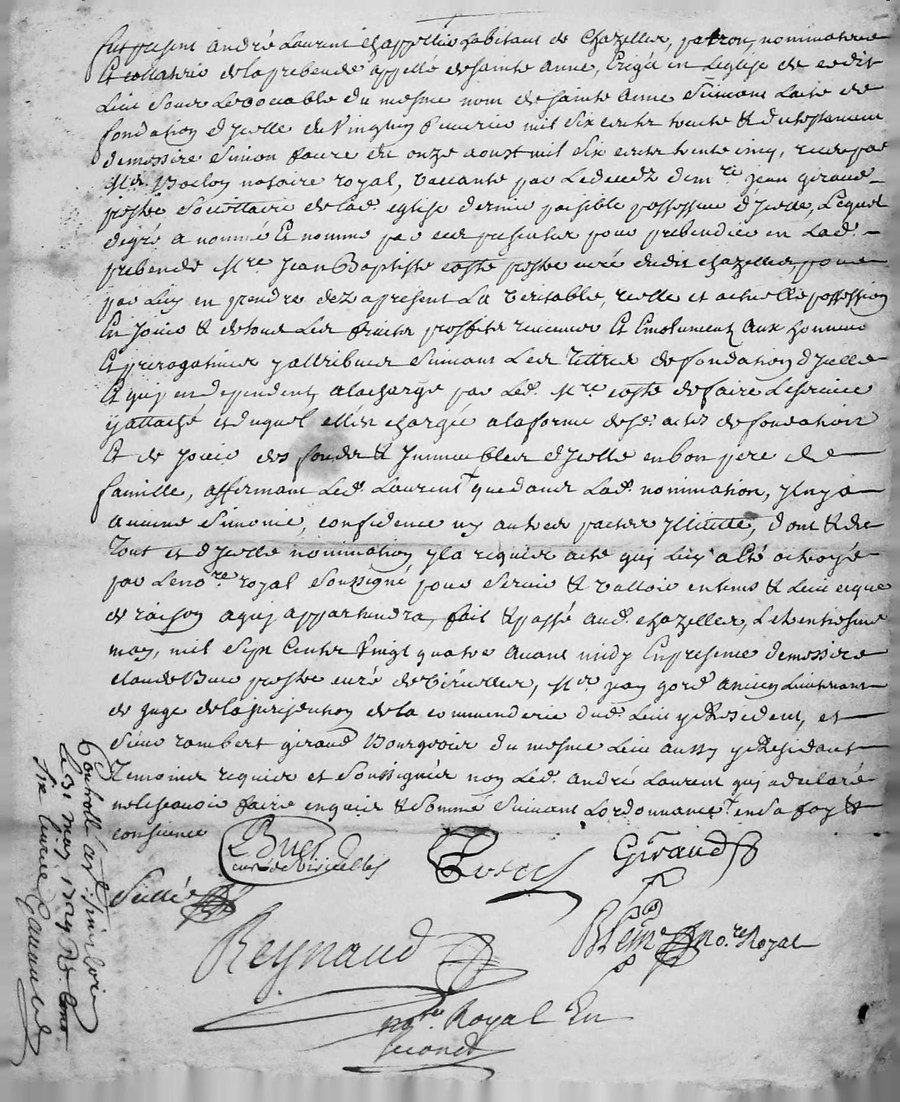 fut present André Laurent chappellié habitant de Chazelles, patron, nominateur
Et collateur de la prebende appellé de sainte Anne, Erigée en L'eglise de cedit
Lieu soubs Le vocable du mesme nom de sainte Anne suivant L'acte de
fondation d'Jcelle du Vingt fevrier mil six cents trente & du testament
de messire Simon faure du onze aoust mil six cents trente cinq, receu par
Mr. notaire royal, vaccante par Le deceds de mre. jean giraud
prestre Societtaire de lad. eglise dernier paisible possesseur d'Jcelle, Lequel
de gré a nommé Et nomme par ces presentes pour prebendier en Lad.
prebende Mre. Jean Baptiste coste prestre curé dudit chazelles, pour
par Luy en prendre dez a present La veritable, reelle et actuelle possession
En jouir & de tous Les fruits proffits revenus Et Emoluments aux honneurs
Et prerogatives y attribués suivant Les tittres de fondation d'Jcelle
Et quy en dependent, a la charge par Led. Mre. coste de faire Le service
y attaché et duquel elle est chargée a la forme desd. actes de fondation
Et de jouir des fonds & Jmmeubles d'Jcelle en bon pere de
famille, affirmant Led. Laurent que dans Lad. nomination, il n'y a
aucune simonie, confidence ny autres pactes Jllicitte, dont & de
tout et d'Jcelle nomination il a requis acte quy Luy a esté octroyé
par Le nore. royal soussigné pour servir & valloir en tems & Lieu ce que
de raison a quy appartiendra, fait & passé aud. chazelles, Le trentiesme
may, mil sept cents vingt quatre avant midy En presence de messire
claude Buer prestre curé de viricelles, Mr. jean ancien Lieutenant
de juge de la jurisdiction de la commenderie dud. Lieu y Resident, et
sieur rambert giraud Bourgeois du mesme Lieu aussy y Residant
temoins requis et soussignés non Led. André Laurent quy a declaré
ne le scavoir faire enquis & sommé suivant L'ordonnance et en sa foy &
consience
Buer
curé de viricelles
Giraud
Reynaud
nore. Royal
nore. Royal En
second
Controllé a st. Simforie
Le 31 may 1724 Rd. 
six livres